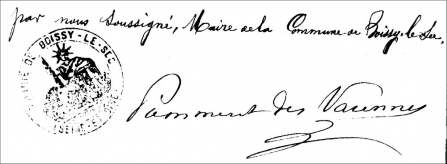 par nous soussigné, Maire de la Commune de Boissy-le-Sec.
BOISSY-LE-SEC
des Varennes